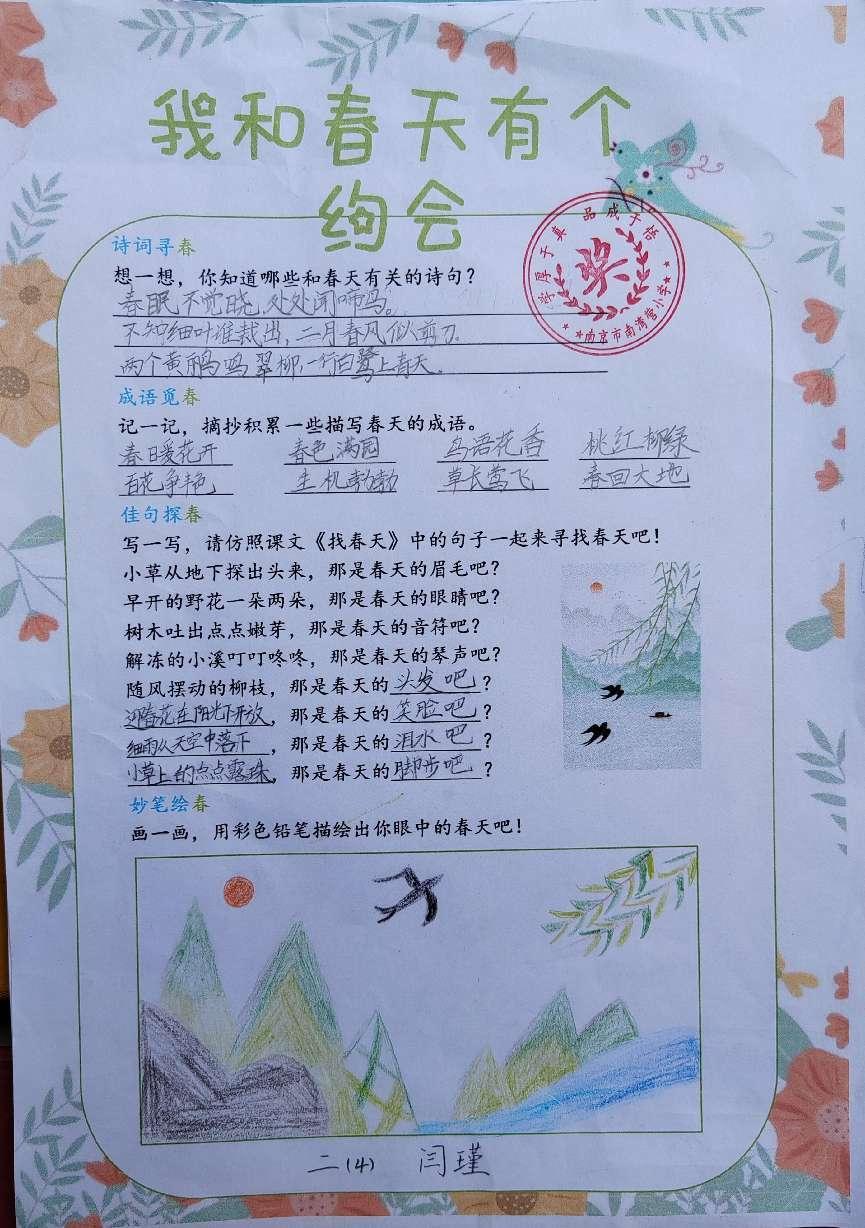 我和春天有个
绚会
学厚于真 品成于悟
奖
南京市南湾营小学
诗词寻春
想一想，你知道哪些和春天有关的诗句？
春眠不觉晓，处处闻啼鸟。
不知细叶谁裁出，二月春风似剪刀。
两个黄鹂鸣翠柳，一行白鹭上青天。
成语觅春
记一记，摘抄积累一些描写春天的成语。
春暖花开 春色满园 鸟语花香 桃红柳绿
百花争艳 生机勃勃 草长莺飞 春回大地
佳句探春
写一写，请仿照课文《找春天》中的句子一起来寻找春天吧！
小草从地下探出头来，那是春天的眉毛吧？
早开的野花一朵两朵，那是春天的眼睛吧？
树木吐出点点嫩芽，那是春天的音符吧？
解冻的小溪叮叮咚咚，那是春天的琴声吧？
随风摆动的柳枝，那是春天的头发吧？
迎春花在阳光下开放，那是春天的笑脸吧？
细雨从天空中落下，那是春天的泪水吧？
小草上的点点露珠，那是春天的脚步吧？
妙笔绘春
画一画，用彩色铅笔描绘出你眼中的春天吧！
二(4) 闫瑾